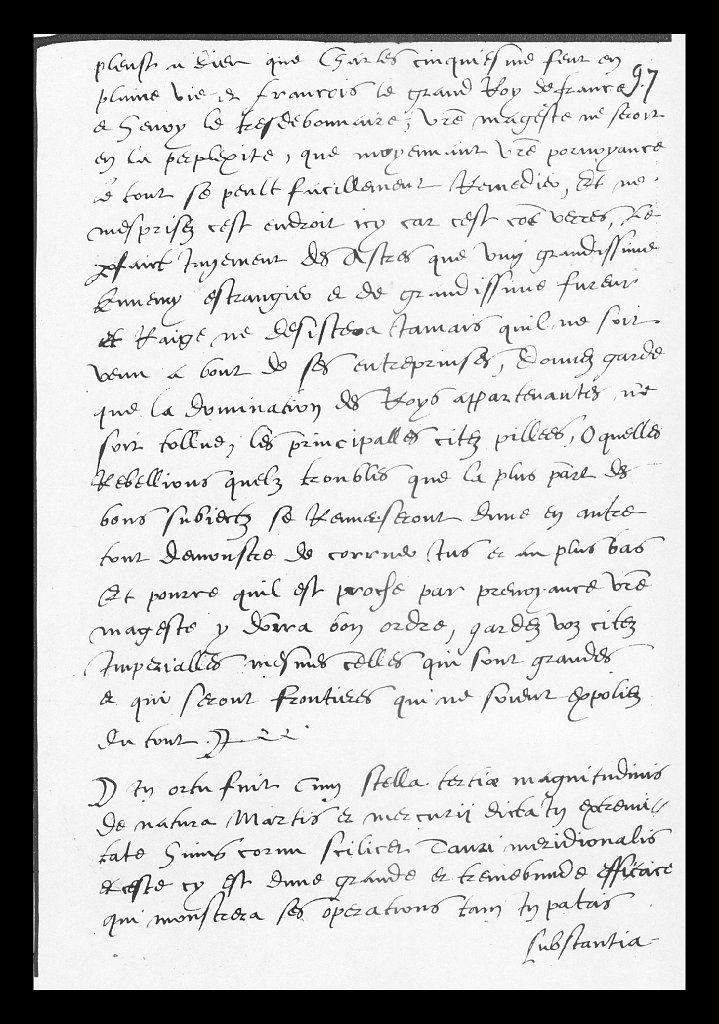 pleust a dieu que Charles cinquiesme feut en
plaine vie et francois le grand Roy de france 97
et Henry le tresdebonnaire, vre mageste ne seroit
en la perplexite, que moyennant vre pourvoyance
le tout se peult facillement Remedier, Et ne
mesprisez cest endroit icy car cest cose veres, le
parfaict Jugement des Astres que vng grandissime
Ennemy estrangier et de grandissime fureur
et Raige ne desistera Jamais quil ne soit
venu a bout de ses entreprinses, donnez garde
que la domination des Roys appartenantes ne
soit tollue, les principalles citez pillees, O quelles
Rebellions quelz troubles que la plus part des
bons subiectz se Remerseront dune en autre
tout demonstre de corrner Jus et au plus bas
Et pource quil est proche par prevoyance vre
mageste y dorra bon ordre, gardez voz citez
Imperialles mesmes celles qui sont grandes
et qui seront frontieres qui ne soient expoliez
du tout
D In ortu fuit Cum stella tertiæ magnitudinis
de natura Martis et mercurii dicta In extremi-
tate huius cornu scilicet Tauri meridionalis
et ceste cy est dune grande et tremebunde efficace
qui monstrera ses operations tam In patris
substantia